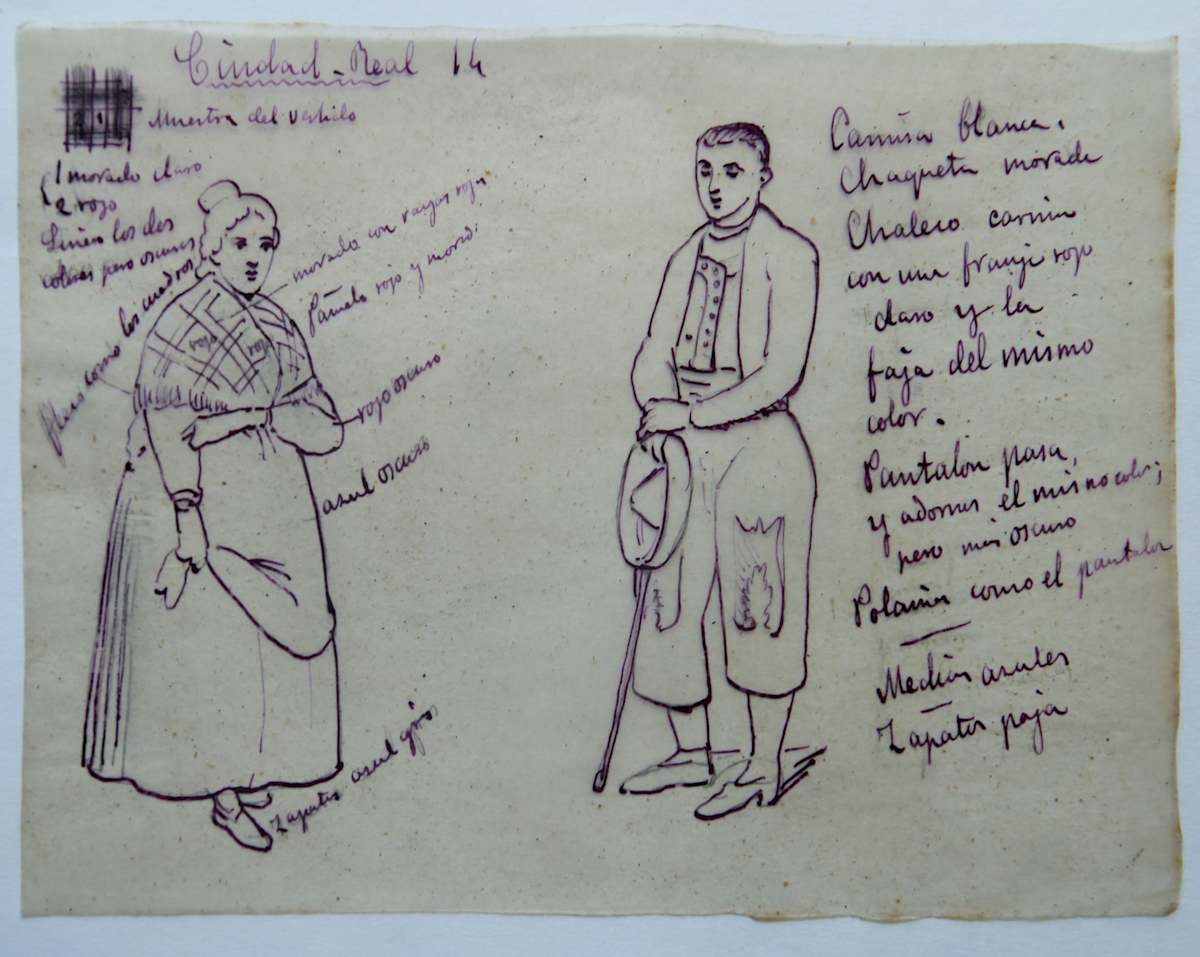 Ciudad-Real 14
2 1
Muestra del vestido
1 morado claro
2 rojo
Lineas los dos
colores pero oscuros
fleco como los cuadros
morado con rayas rojas
Pañuelo rojo y morad.
rojo
rojo
rojo oscuro
azul oscuro
Zapatos azul gris
Camisa blanca.
Chaqueta morada
Chaleco carmin
con una franja rojo
claro y la
faja del mismo
color.
Pantalón pasa,
y adornos el mismo color;
pero más oscuro
Polaina como el pantalon
Medias azules
Zapatos paja